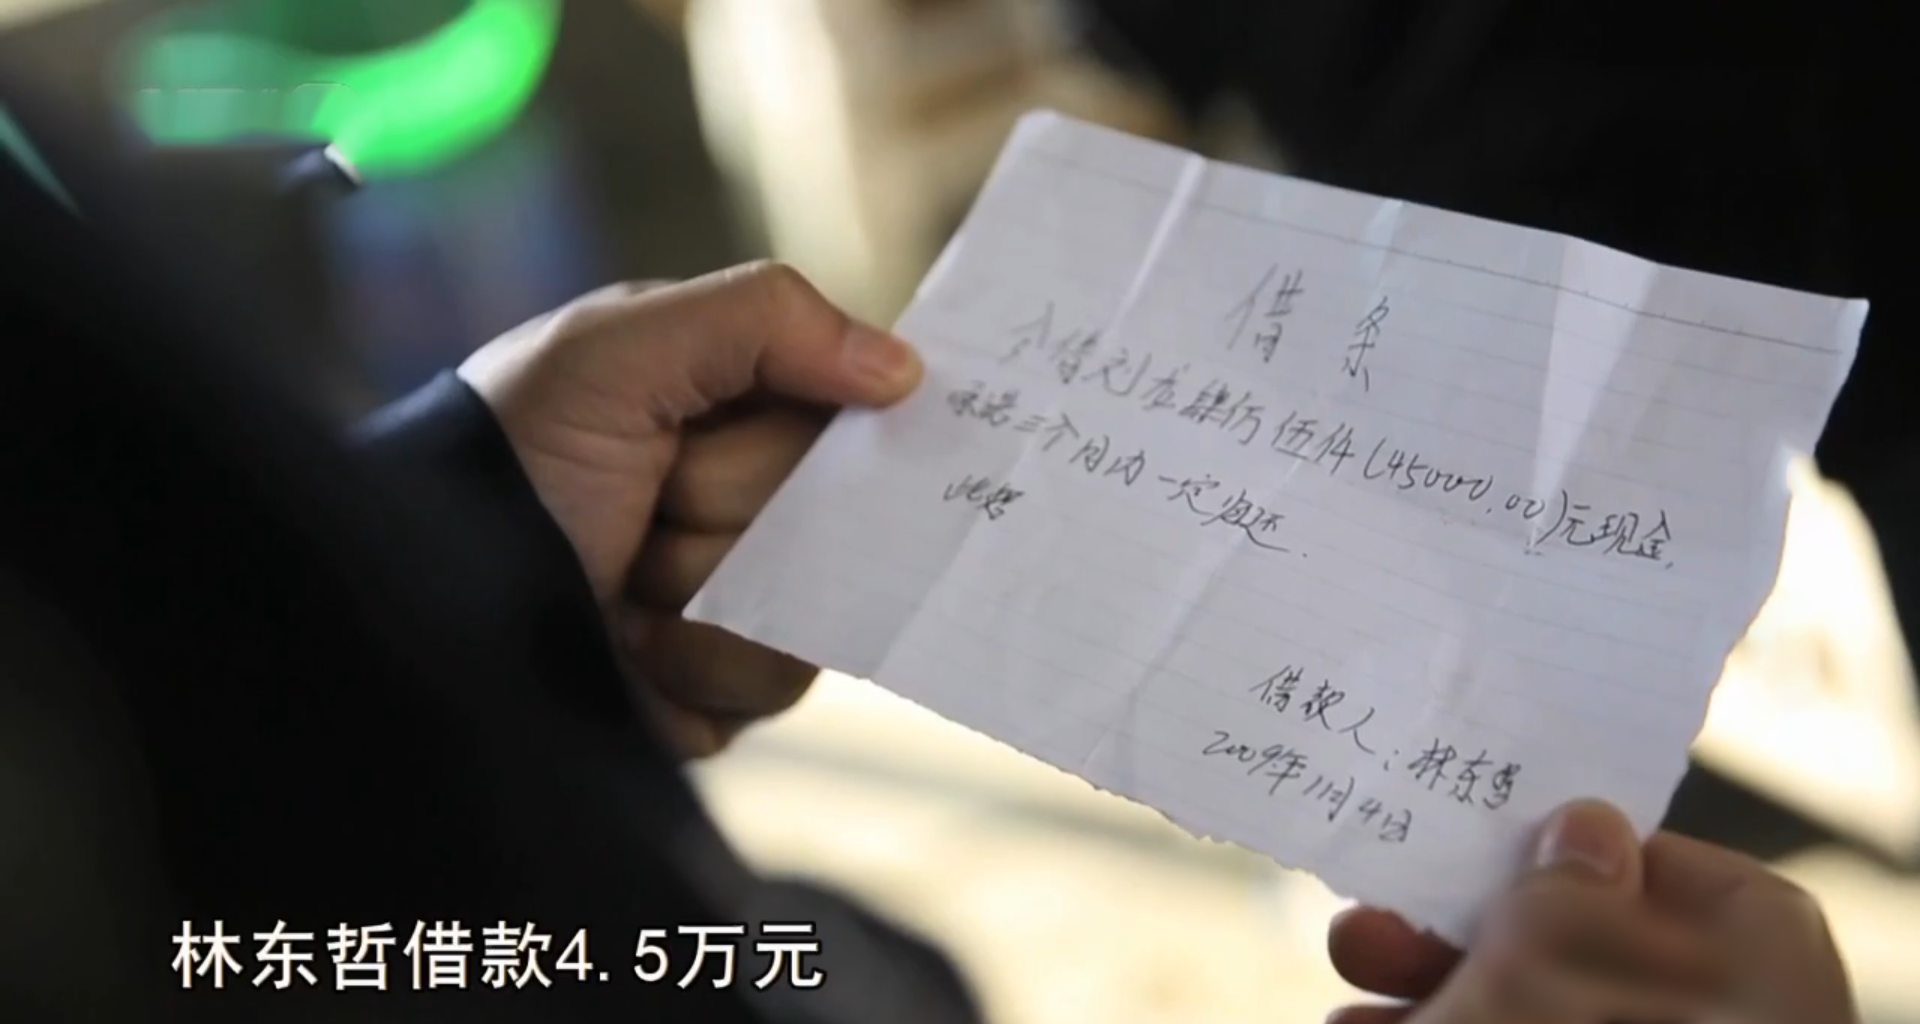 借条
今借刘龙肆仟伍仟(45000.00)元现金,
承诺三个月内一定归还.
此据
借款人:林东哲
2009年11月4日
林东哲借款4.5万元